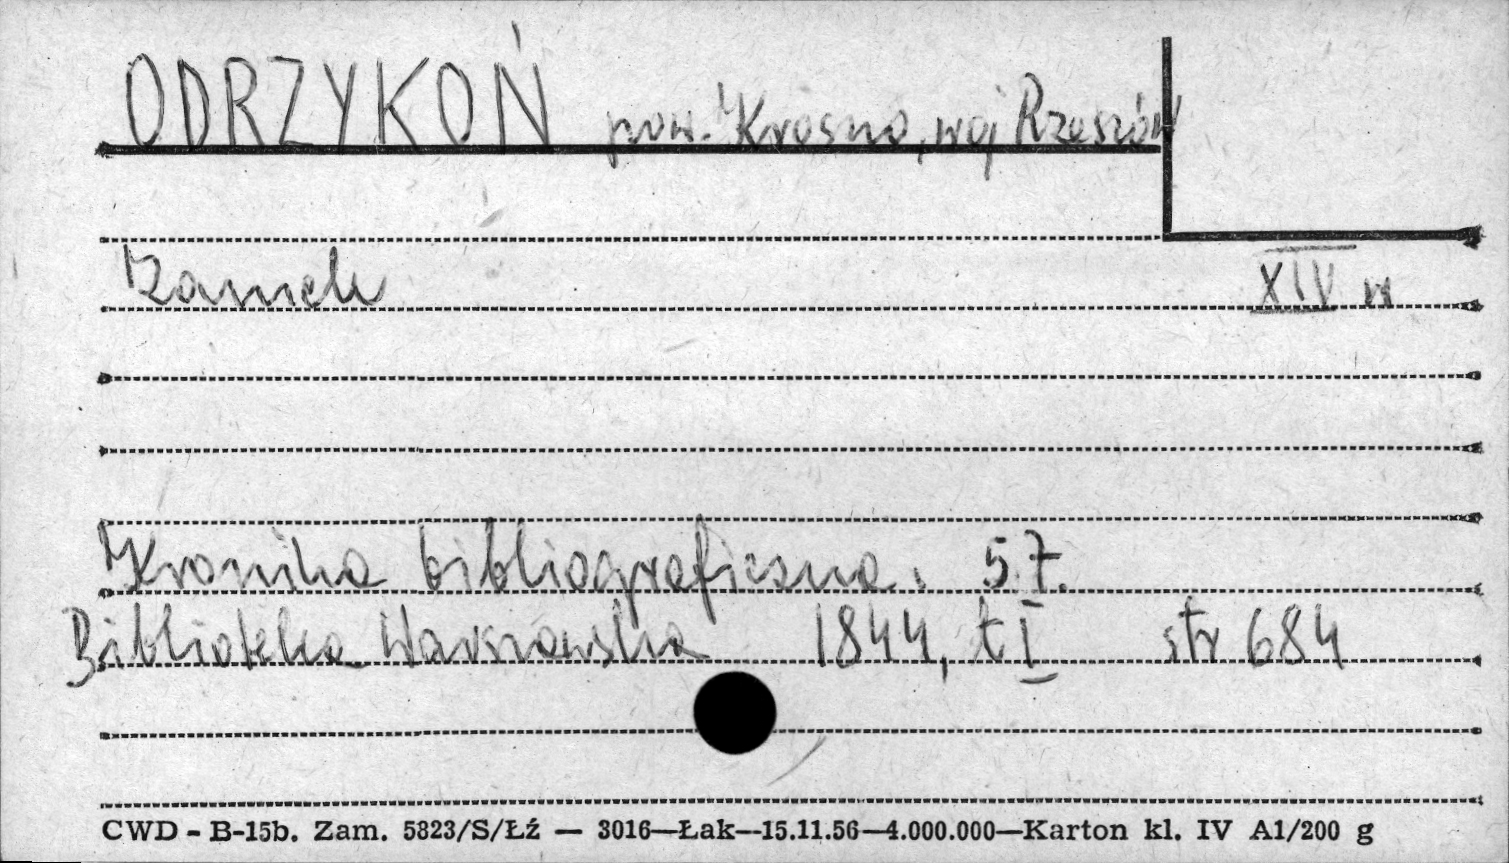 ODRZYKOŃ pow. Krosno, woj Rzeszów
Zamek XIV w
Kronika bibliograficzna. 57.
Biblioteka Warszawska 1844, t I str 684
CWD - B-15b. Zam. 5823/S/Łź — 3016—Łak—15.11.56—4.000.000—Karton kl. IV A1/200 g